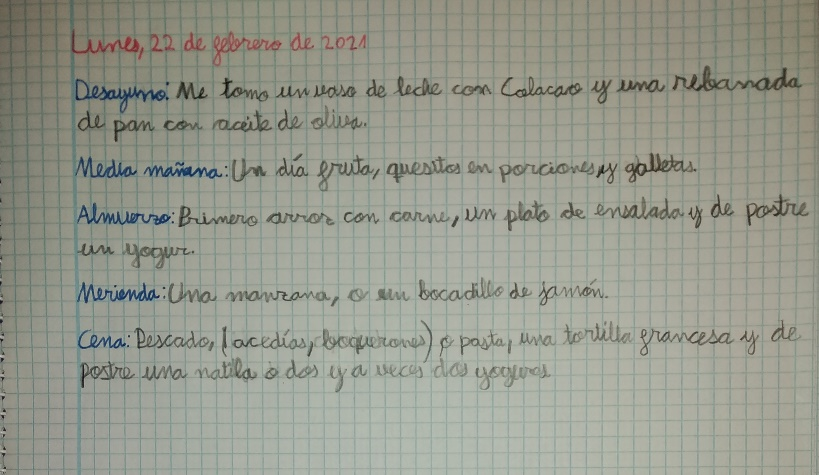 Lunes, 22 de febrero de 2021
Desayuno: Me tomo un vaso de leche con Colacao y una rebanada
de pan con aceite de oliva.
Media mañana: Un día fruta, quesitos en porciones, y galletas.
Almuerzo: Primero arroz con carne, un plato de ensalada y de postre
un yogur.
Merienda: Una manzana, o un bocadillo de jamón.
Cena: Pescado, (acedías, boquerones) o pasta, una tortilla francesa y de
postre una natilla o dos y a veces dos yogures.